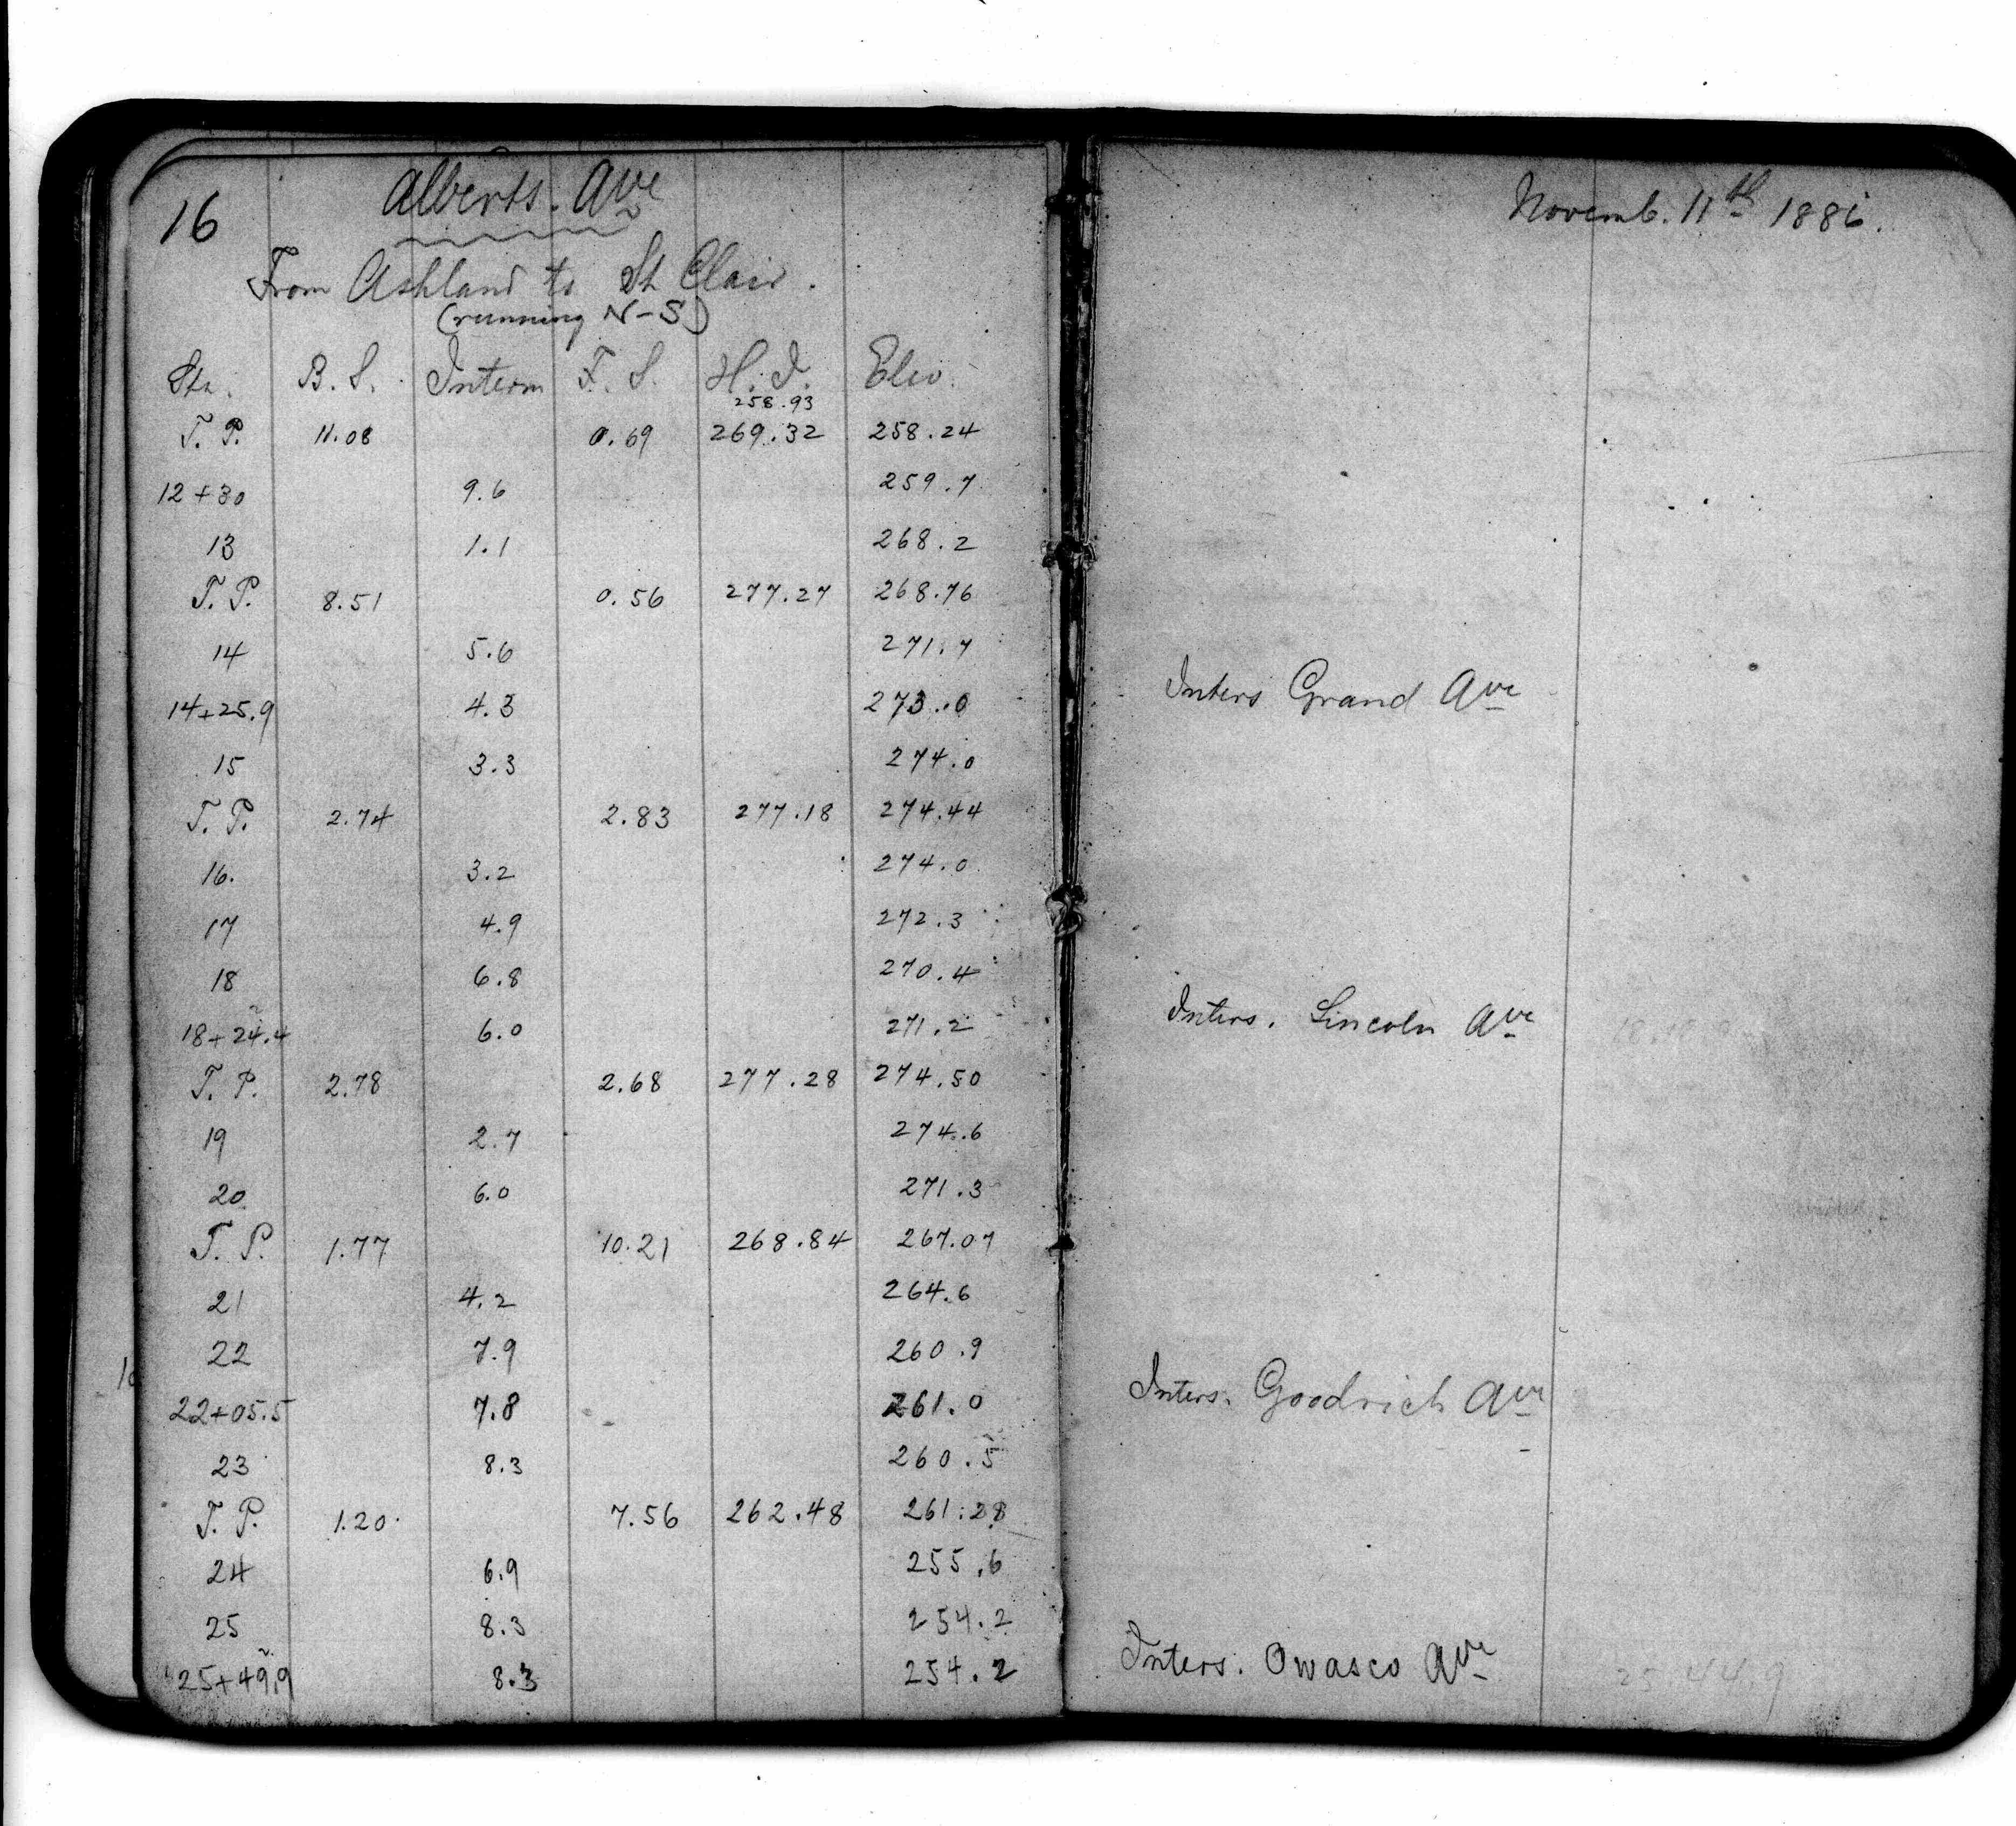 16
Alberts. Ave
From Ashland to St Clair.
(running N-S)
Sta. B. S. Interm F. S. H. I. Elev.
258.93
T. P. 11.08 0.69 269.32 258.24
12+30 9.6 259.7
13 1.1 268.2
T. P. 8.51 0.56 277.27 268.76
14 5.6 271.7
14+25.9 4.3 273.0
15 3.3 274.0
T. P. 2.74 2.83 277.18 274.44
16. 3.2 274.0
17 4.9 272.3
18 6.8 270.4
18+24.4 6.0 271.2
T. P. 2.78 2.68 277.28 274.50
19 2.7 274.6
20 6.0 271.3
T. P. 1.77 10.21 268.84 267.07
21 4.2 264.6
22 7.9 260.9
22+05.5 7.8 261.0
23 8.3 260.5
T. P. 1.20 7.56 262.48 261.28
24 6.9 255.6
25 8.3 254.2
25+49.9 8.3 254.2
Novemb. 11th 1886.
Inters Grand Ave
Inters. Lincoln Ave
Inters. Goodrich Ave
Inters. Owasco Ave
25.44.9